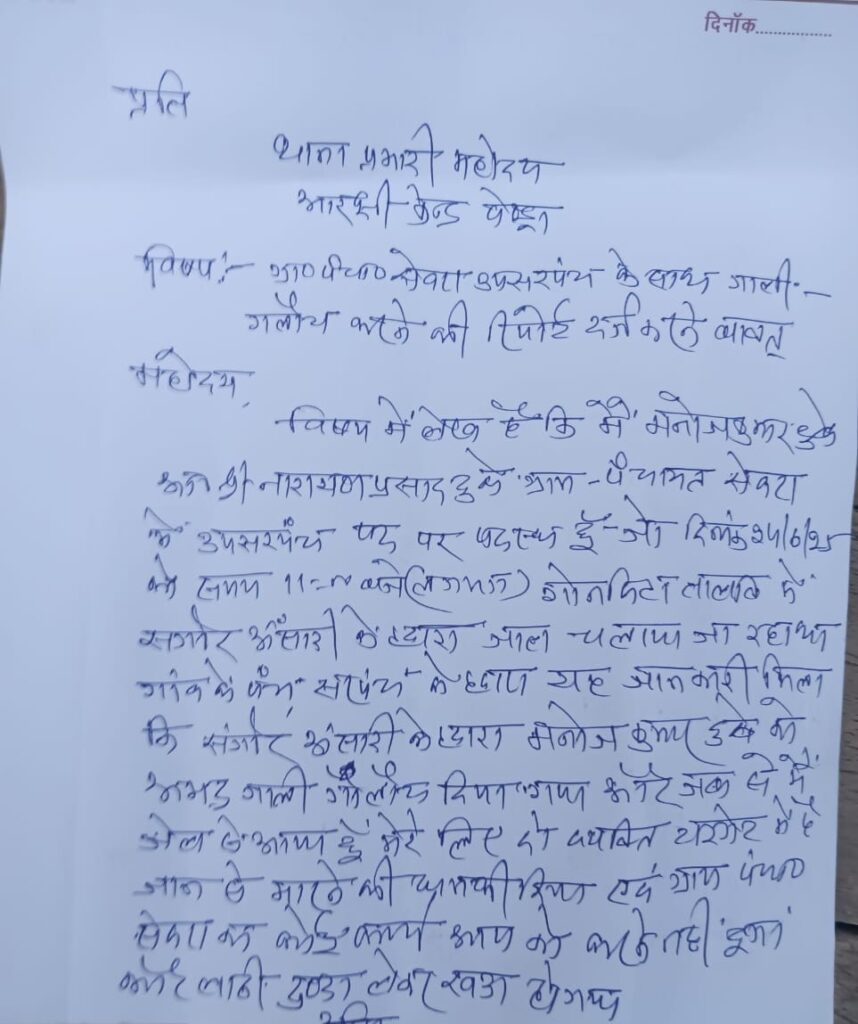 दिनॉक................
प्रति
थाना प्रभारी महोदय
आरक्षी केन्द्र पेण्ड्रा
विषय:- ग्रा० पंचा० सेवरा उपसरपंच के साथ गाली-
गलौच करने की रिपोर्ट दर्ज करने बाबत्
महोदय,
विषय में लेख है कि मैं मनोज कुमार दुबे
श्री नारायण प्रसाद दुबे ग्राम-पंचायत सेवरा
के उपसरपंच पद पर पदस्थ हूँ जो दिनांक 24/6/25
को समय 11=00 बजे तालाब में
अंसारी के द्वारा जाल चलाया जा रहा था
गांव के पंच, सरपंच के द्वारा यह जानकारी मिला
कि अंसारी के द्वारा मनोज कुमार दुबे को
अभद्र गाली गौलौच दिया गया और जब से मैं
जेल से आया हूँ मेरे लिए दो व्यक्ति टारगेट में है
जान से मारने की धमकी दिया एवं ग्राम पंचा०
सेवरा का कोई कार्य आप को करने नहीं दूंगा
और लाठी डण्डा लेकर खडा हो गया